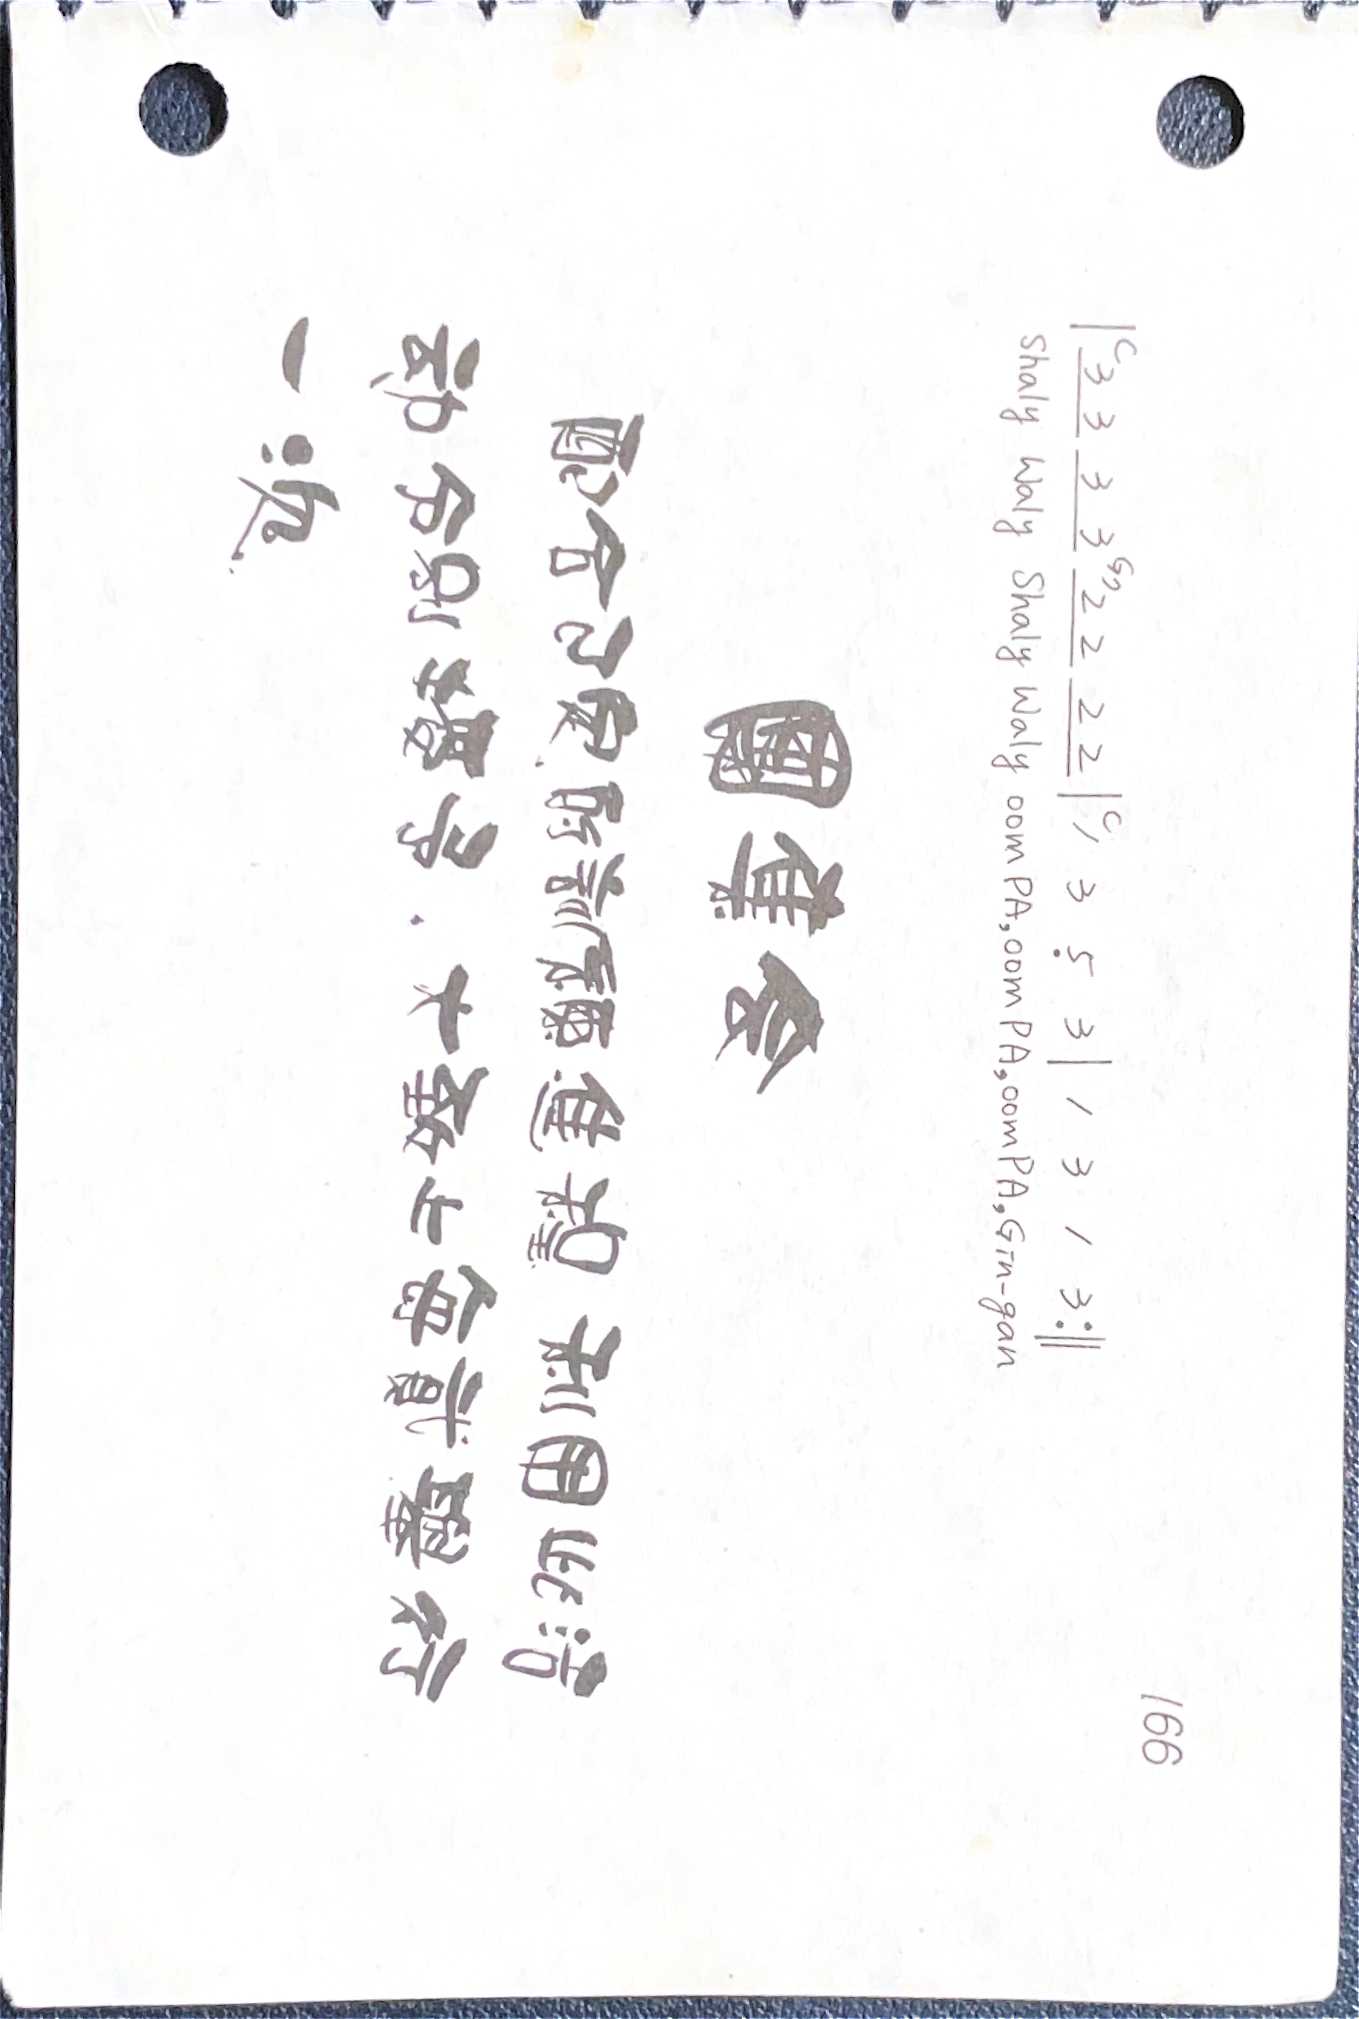 166
|C 3 3 3 3 G7 2 2 2 2 | C 1 3 5̣ 3 | 1 3 1 3 :‖
Shaly Waly Shaly Waly oom PA, oom PA, oom PA, Gin-gan
團集会
配合已定的訓練進程 利用此活
动分别授予.大致上每貳舉行
一次.